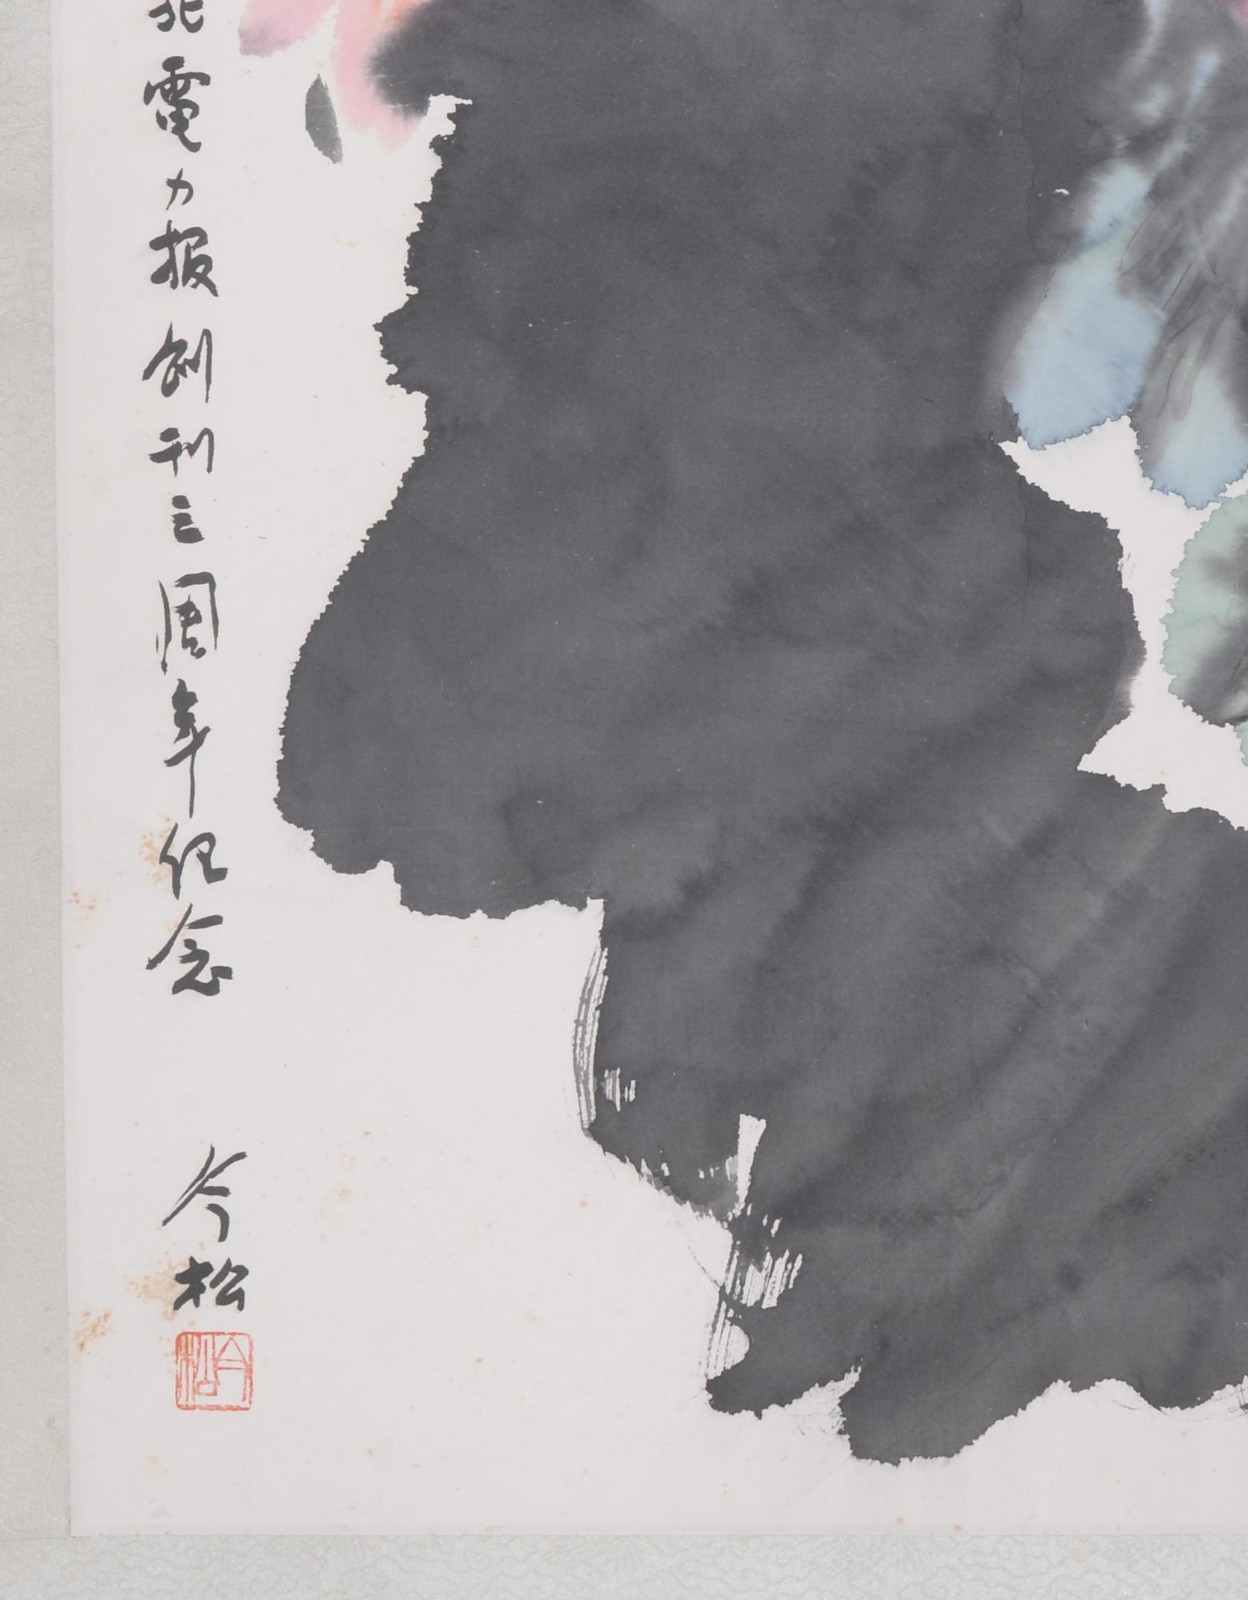 北電力报創刊三周年纪念
今松
今松